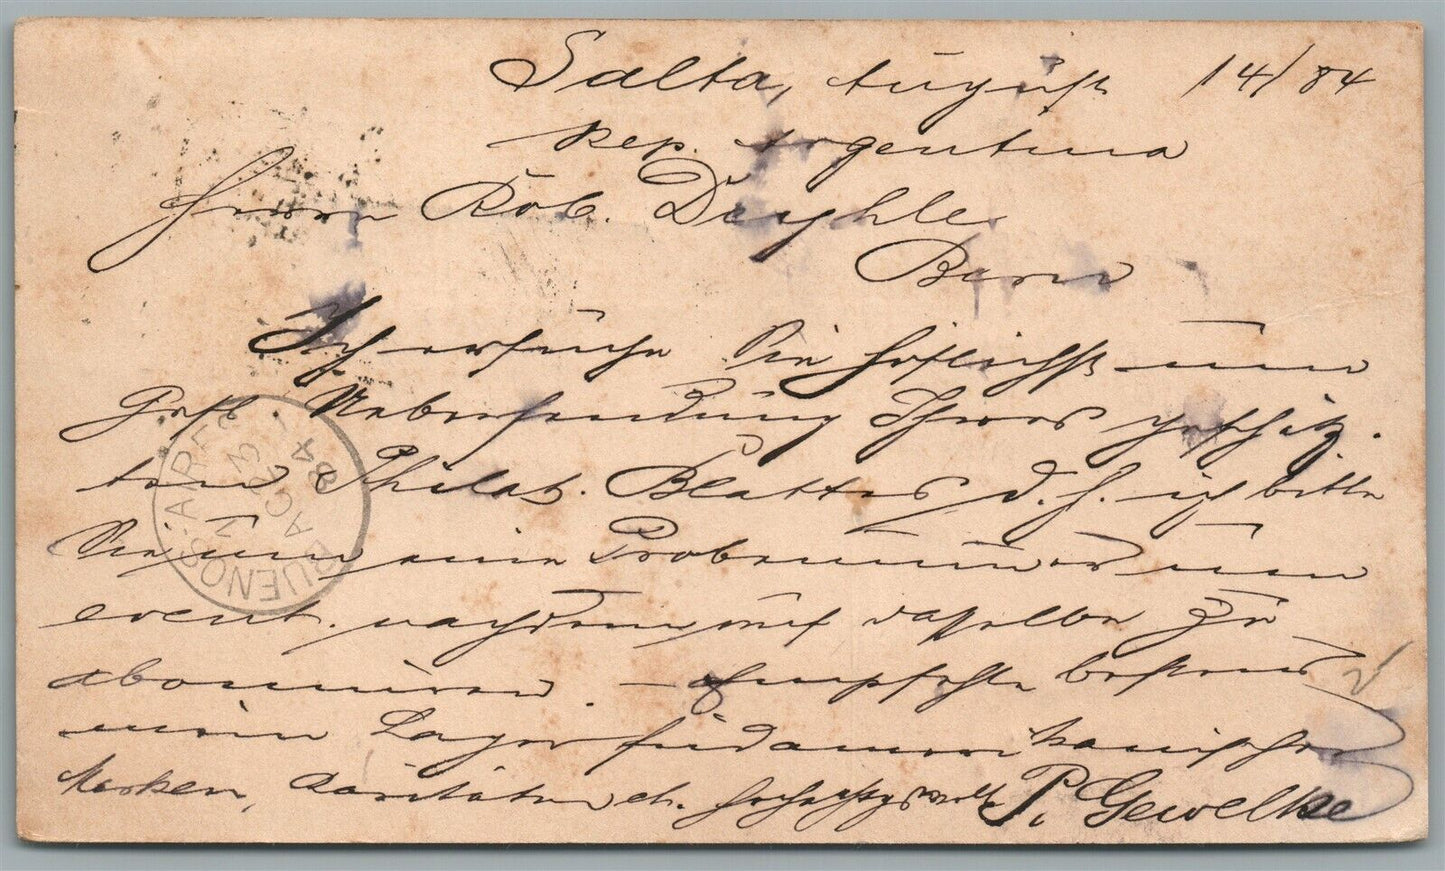 Salta, August 14/84
Rep. Argentina
Herrn Rob. Deyhle
Bern
Ich ersuche Sie höflichst um
gefl. Uebersendung Ihres geschätz-
ten Philat. Blattes, d. h. ich bitte
Sie um eine Probenummer um
event. nachdem auf dasselbe zu
abonniren. – Empfehle bestens
mein Lager südamerikanischer
Marken, Raritäten etc. hochachtungsvoll P. Gewelke
BUENOS-AIRES
23 AG 84